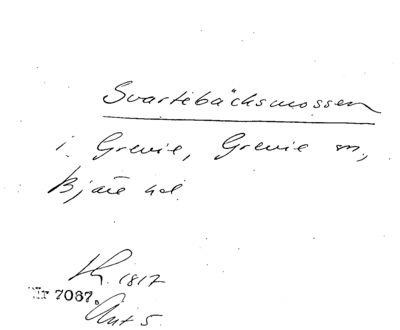 Svartebäcksmossen
i. Grevie, Grevie sn,
Bjäre hd.
1817
Nr 7067.
Ant 5.